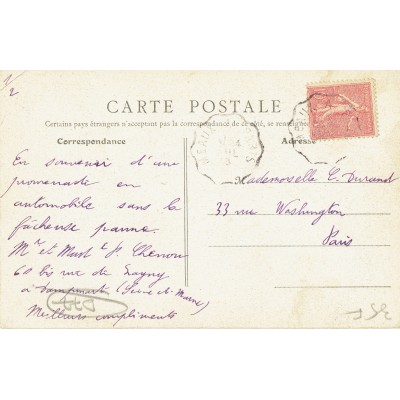 CARTE POSTALE
Certains pays étrangers n'acceptant pas la correspondance de ce côté, se renseigner
Correspondance
Adresse
En souvenir d'une
promenade en
automobile sans la
fâcheuse panne.
Mr et
60 bis rue de Lagny
à Dampmart (Seine-et-Marne)
Meilleurs compliments
Mademoiselle C. Durand
33 rue Washington
Paris